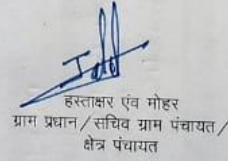 हस्ताक्षर एंव मोहर
ग्राम प्रधान/सचिव ग्राम पंचायत/
क्षेत्र पंचायत